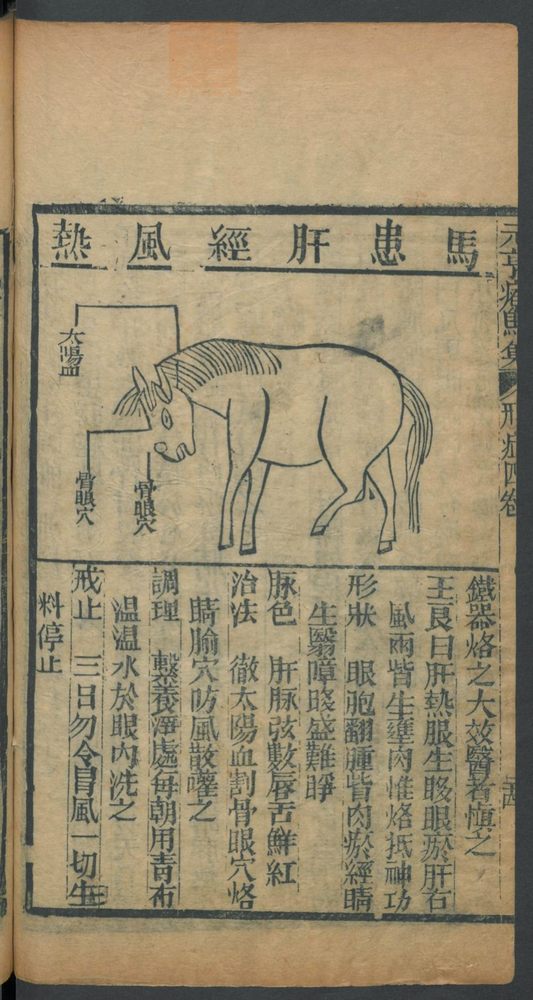 元亨療馬集 形症四卷
馬患肝經風熱
太陽血
骨眼穴
骨眼穴
鐵器烙之大效醫者慎之
王良曰肝熱眼生眵眼瘀肝右
風雨眥生壅肉惟烙抵神功
形狀 眼胞翻腫眥肉瘀經睛
生翳嶂眵盛難睜
脉色 肝脉弦數唇舌鮮紅
治法 徹太陽血割骨眼穴烙
睛腧穴防風散灌之
調理 繫養淨處每朝用青布
温温水於眼内洗之
戒止 三日勿令冒風一切生
料停止